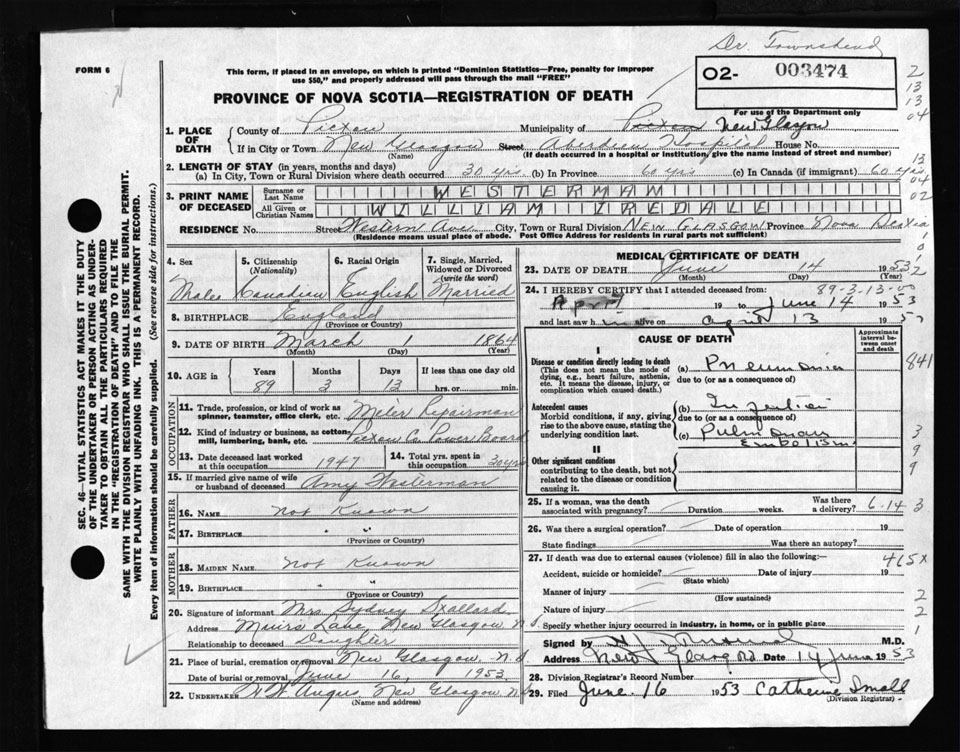 Dr. Townshend
FORM 6
This form, if placed in an envelope, on which is printed "Dominion Statistics—Free, penalty for improper
use $50," and properly addressed will pass through the mail "FREE"
02- 003474
PROVINCE OF NOVA SCOTIA—REGISTRATION OF DEATH
For use of the Department only
1. PLACE OF DEATH { County of Pictou Municipality of Pictou New Glasgow
If in City or Town New Glasgow Street Aberdeen Hospital House No.
(Name) (If death occurred in a hospital or institution, give the name instead of street and number)
2. LENGTH OF STAY (in years, months and days)
(a) In City, Town or Rural Division where death occurred 30 yrs. (b) In Province 60 yrs (c) In Canada (if immigrant) 60 yrs
3. PRINT NAME OF DECEASED { Surname or Last Name WESTERMAN
All Given or Christian Names WILLIAM IREDALE
RESIDENCE No. Street Western Ave. City, Town or Rural Division NEW GLASGOW Province Nova Scotia
(Residence means usual place of abode. Post Office Address for residents in rural parts not sufficient)
4. Sex 5. Citizenship (Nationality) 6. Racial Origin 7. Single, Married, Widowed or Divorced (write the word)
Male Canadian English Married
8. BIRTHPLACE England
(Province or Country)
9. DATE OF BIRTH March 1 1864
(Month) (Day) (Year)
10. AGE in Years Months Days If less than one day old
89 3 13 hrs. or min.
OCCUPATION
11. Trade, profession, or kind of work as spinner, teamster, office clerk, etc. Meter Repairman
12. Kind of industry or business, as cotton-mill, lumbering, bank, etc. Pictou Co. Power Board
13. Date deceased last worked at this occupation 1947 14. Total yrs. spent in this occupation 30 yrs
15. If married give name of wife or husband of deceased Amy Westerman
FATHER
16. NAME Not Known
17. BIRTHPLACE " "
(Province or Country)
MOTHER
18. MAIDEN NAME Not Known
19. BIRTHPLACE " "
(Province or Country)
20. Signature of informant Mrs Sydney Stallard
Address Muirs Lane, New Glasgow N.S.
Relationship to deceased Daughter
21. Place of burial, cremation or removal New Glasgow, N.S.
Date of burial or removal June 16, 1953.
22. UNDERTAKER Angus New Glasgow, N.S.
(Name and address)
MEDICAL CERTIFICATE OF DEATH
23. DATE OF DEATH June 14 1953
(Month) (Day)
24. I HEREBY CERTIFY that I attended deceased from: 89-3-13-00
April 19 to June 14 1953
and last saw h im alive on April 13 19
CAUSE OF DEATH
Approximate interval between onset and death
I
Disease or condition directly leading to death
(This does not mean the mode of dying, e.g., heart failure, asthenia, etc. It means the disease, injury, or complication which caused death.)
(a) Pneumonia 841
due to (or as a consequence of)
Antecedent causes
Morbid conditions, if any, giving rise to the above cause, stating the underlying condition last.
(b)
due to (or as a consequence of)
(c) Pulmonary Embolism
II
Other significant conditions
contributing to the death, but not related to the disease or condition causing it.
25. If a woman, was the death associated with pregnancy? Duration weeks. Was there a delivery? 6-14
26. Was there a surgical operation? Date of operation 19
State findings Was there an autopsy?
27. If death was due to external causes (violence) fill in also the following:—
Accident, suicide or homicide? Date of injury 19
(State which)
Manner of injury
(How sustained)
Nature of injury
Specify whether injury occurred in industry, in home, or in public place
Signed by M.D.
Address New Glasgow Date 14 June 1953
28. Division Registrar's Record Number
29. Filed June 16 1953 Catherine Small
(Division Registrar)
SEC. 46—VITAL STATISTICS ACT MAKES IT THE DUTY
OF THE UNDERTAKER OR PERSON ACTING AS UNDER-
TAKER TO OBTAIN ALL THE PARTICULARS REQUIRED
IN THE "REGISTRATION OF DEATH" AND TO FILE THE
SAME WITH THE DIVISION REGISTRAR WHO SHALL ISSUE THE BURIAL PERMIT.
WRITE PLAINLY WITH UNFADING INK. THIS IS A PERMANENT RECORD.
Every item of information should be carefully supplied. (See reverse side for instructions.)